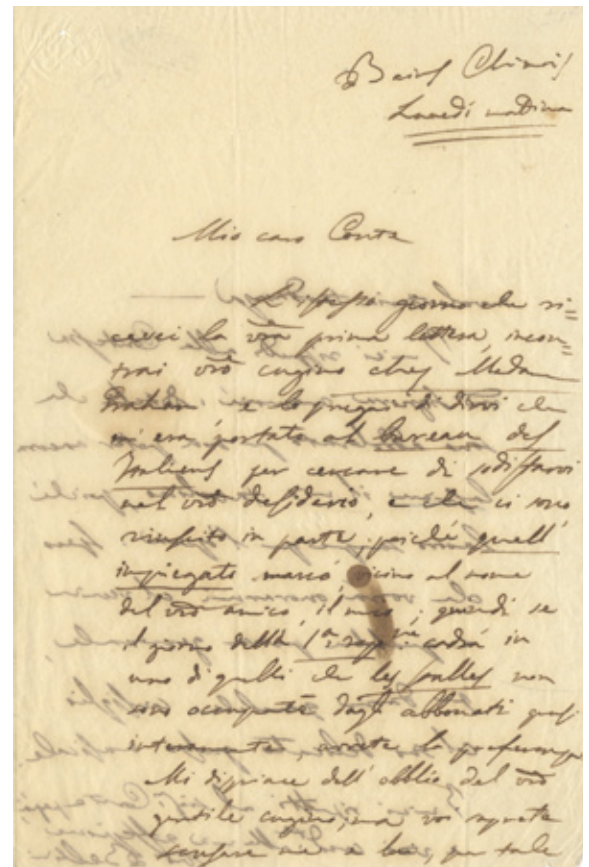 Bains Chinois
Lunedì mattina
Mio caro Conte
L'istesso giorno che ri=
cevei la vrã prima lettera, incon=
trai vrõ cugino chez Madam
Graham e lo pregai di dirvi che
mi era portato al bureau des
Italiens per cercare di sodisfarvi
nel vrõ desiderio, e che ci sono
riuscito in parte, poiché quell'
impiegato marcò, vicino al nome
del vrõ amico, il mio; quindi se
il giorno della 1ª rapp.ne cadrà in
uno di quelli che les stalles non
sono occupate dagli abbonati quasi
interamente, avrete la preferenza
Mi dispiace dell' obblio del vrõ
gentile cugino, ma voi sapete